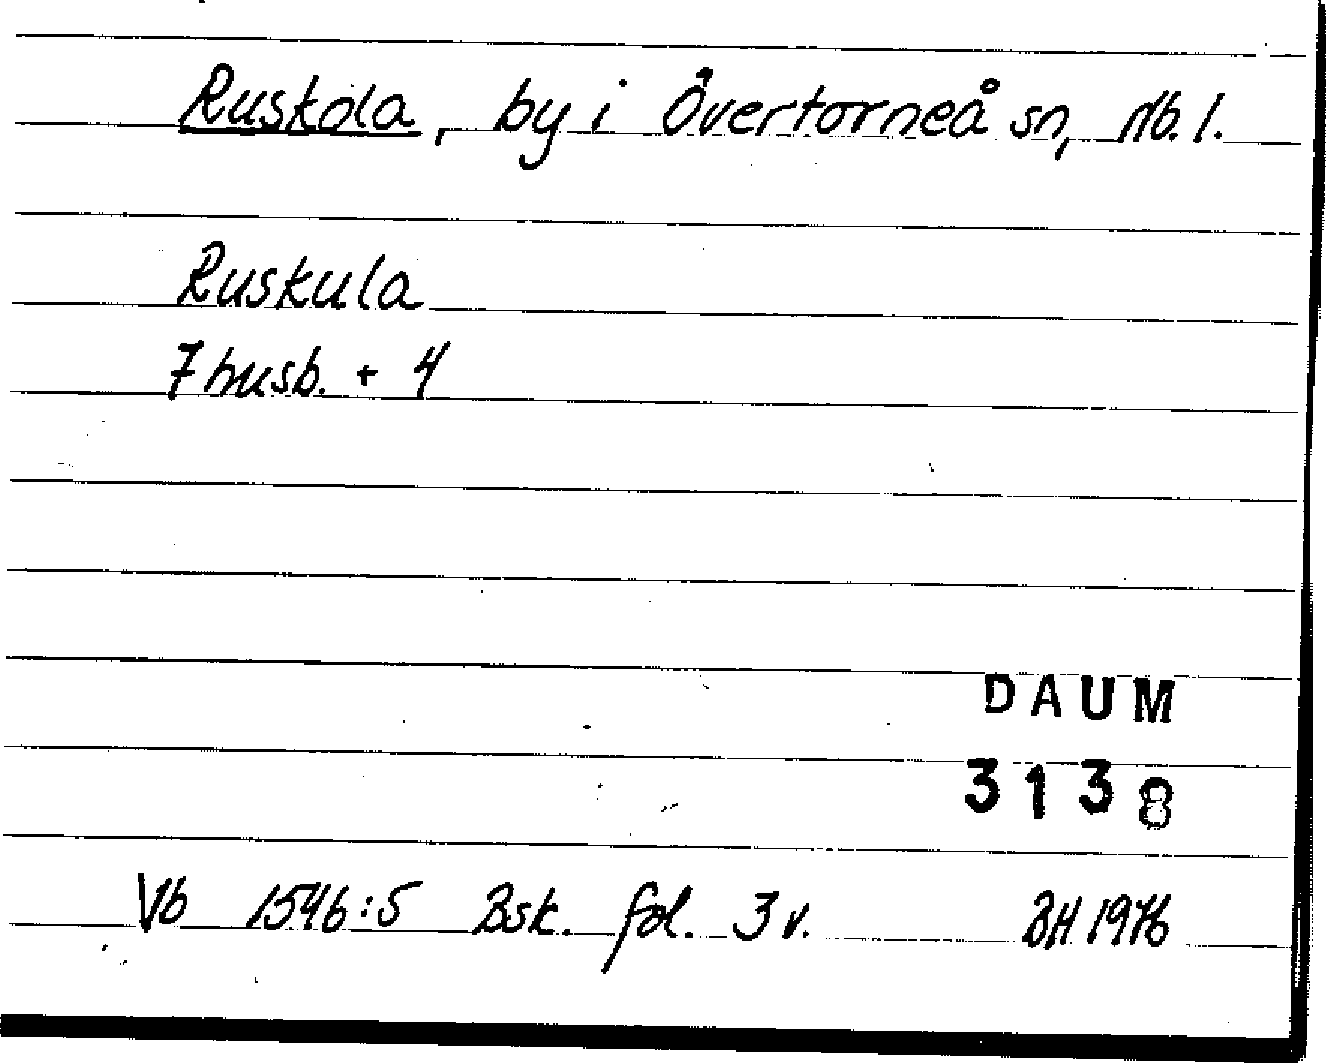 Ruskola, by i Övertorneå sn, Nb. l.
Ruskula
7 husb. + 4
DAUM
3138
Vb 1546:5 Bsk. fol. 3 v. BH 1976